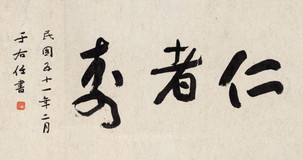 仁者壽
民國五十一年二月
于右任書